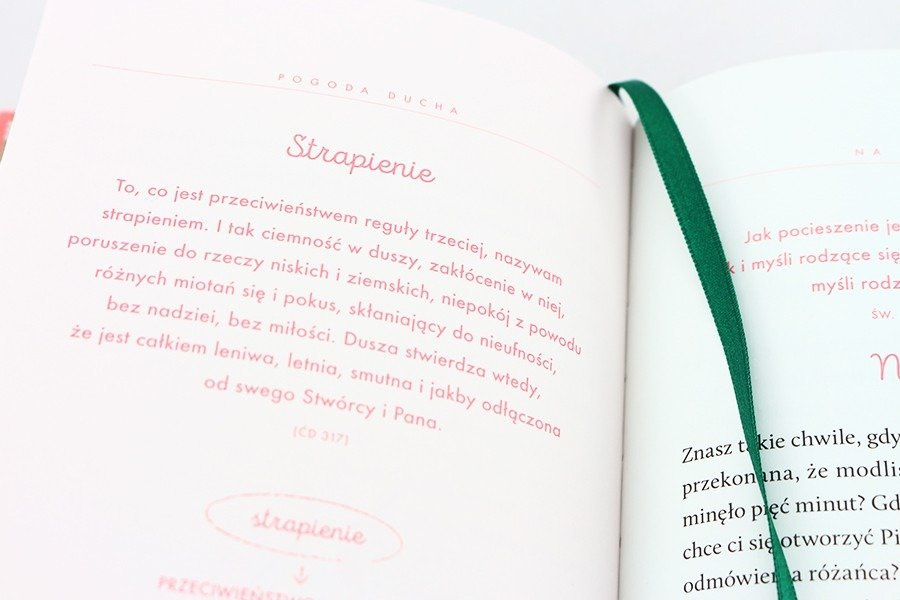 POGODA DUCHA
Strapienie
To, co jest przeciwieństwem reguły trzeciej, nazywam
strapieniem. I tak ciemność w duszy, zakłócenie w niej,
poruszenie do rzeczy niskich i ziemskich, niepokój z powodu
różnych miotań się i pokus, skłaniający do nieufności,
bez nadziei, bez miłości. Dusza stwierdza wtedy,
że jest całkiem leniwa, letnia, smutna i jakby odłączona
od swego Stwórcy i Pana.
(ĆD 317)
strapienie
PRZECIWIEŃSTWO
NA
Jak pocieszenie je
i myśli rodzące się
myśli rodz
św.
N
Znasz takie chwile, gdy
przekonana, że modlis
minęło pięć minut? Gd
chce ci się otworzyć Pi
odmówienia różańca?